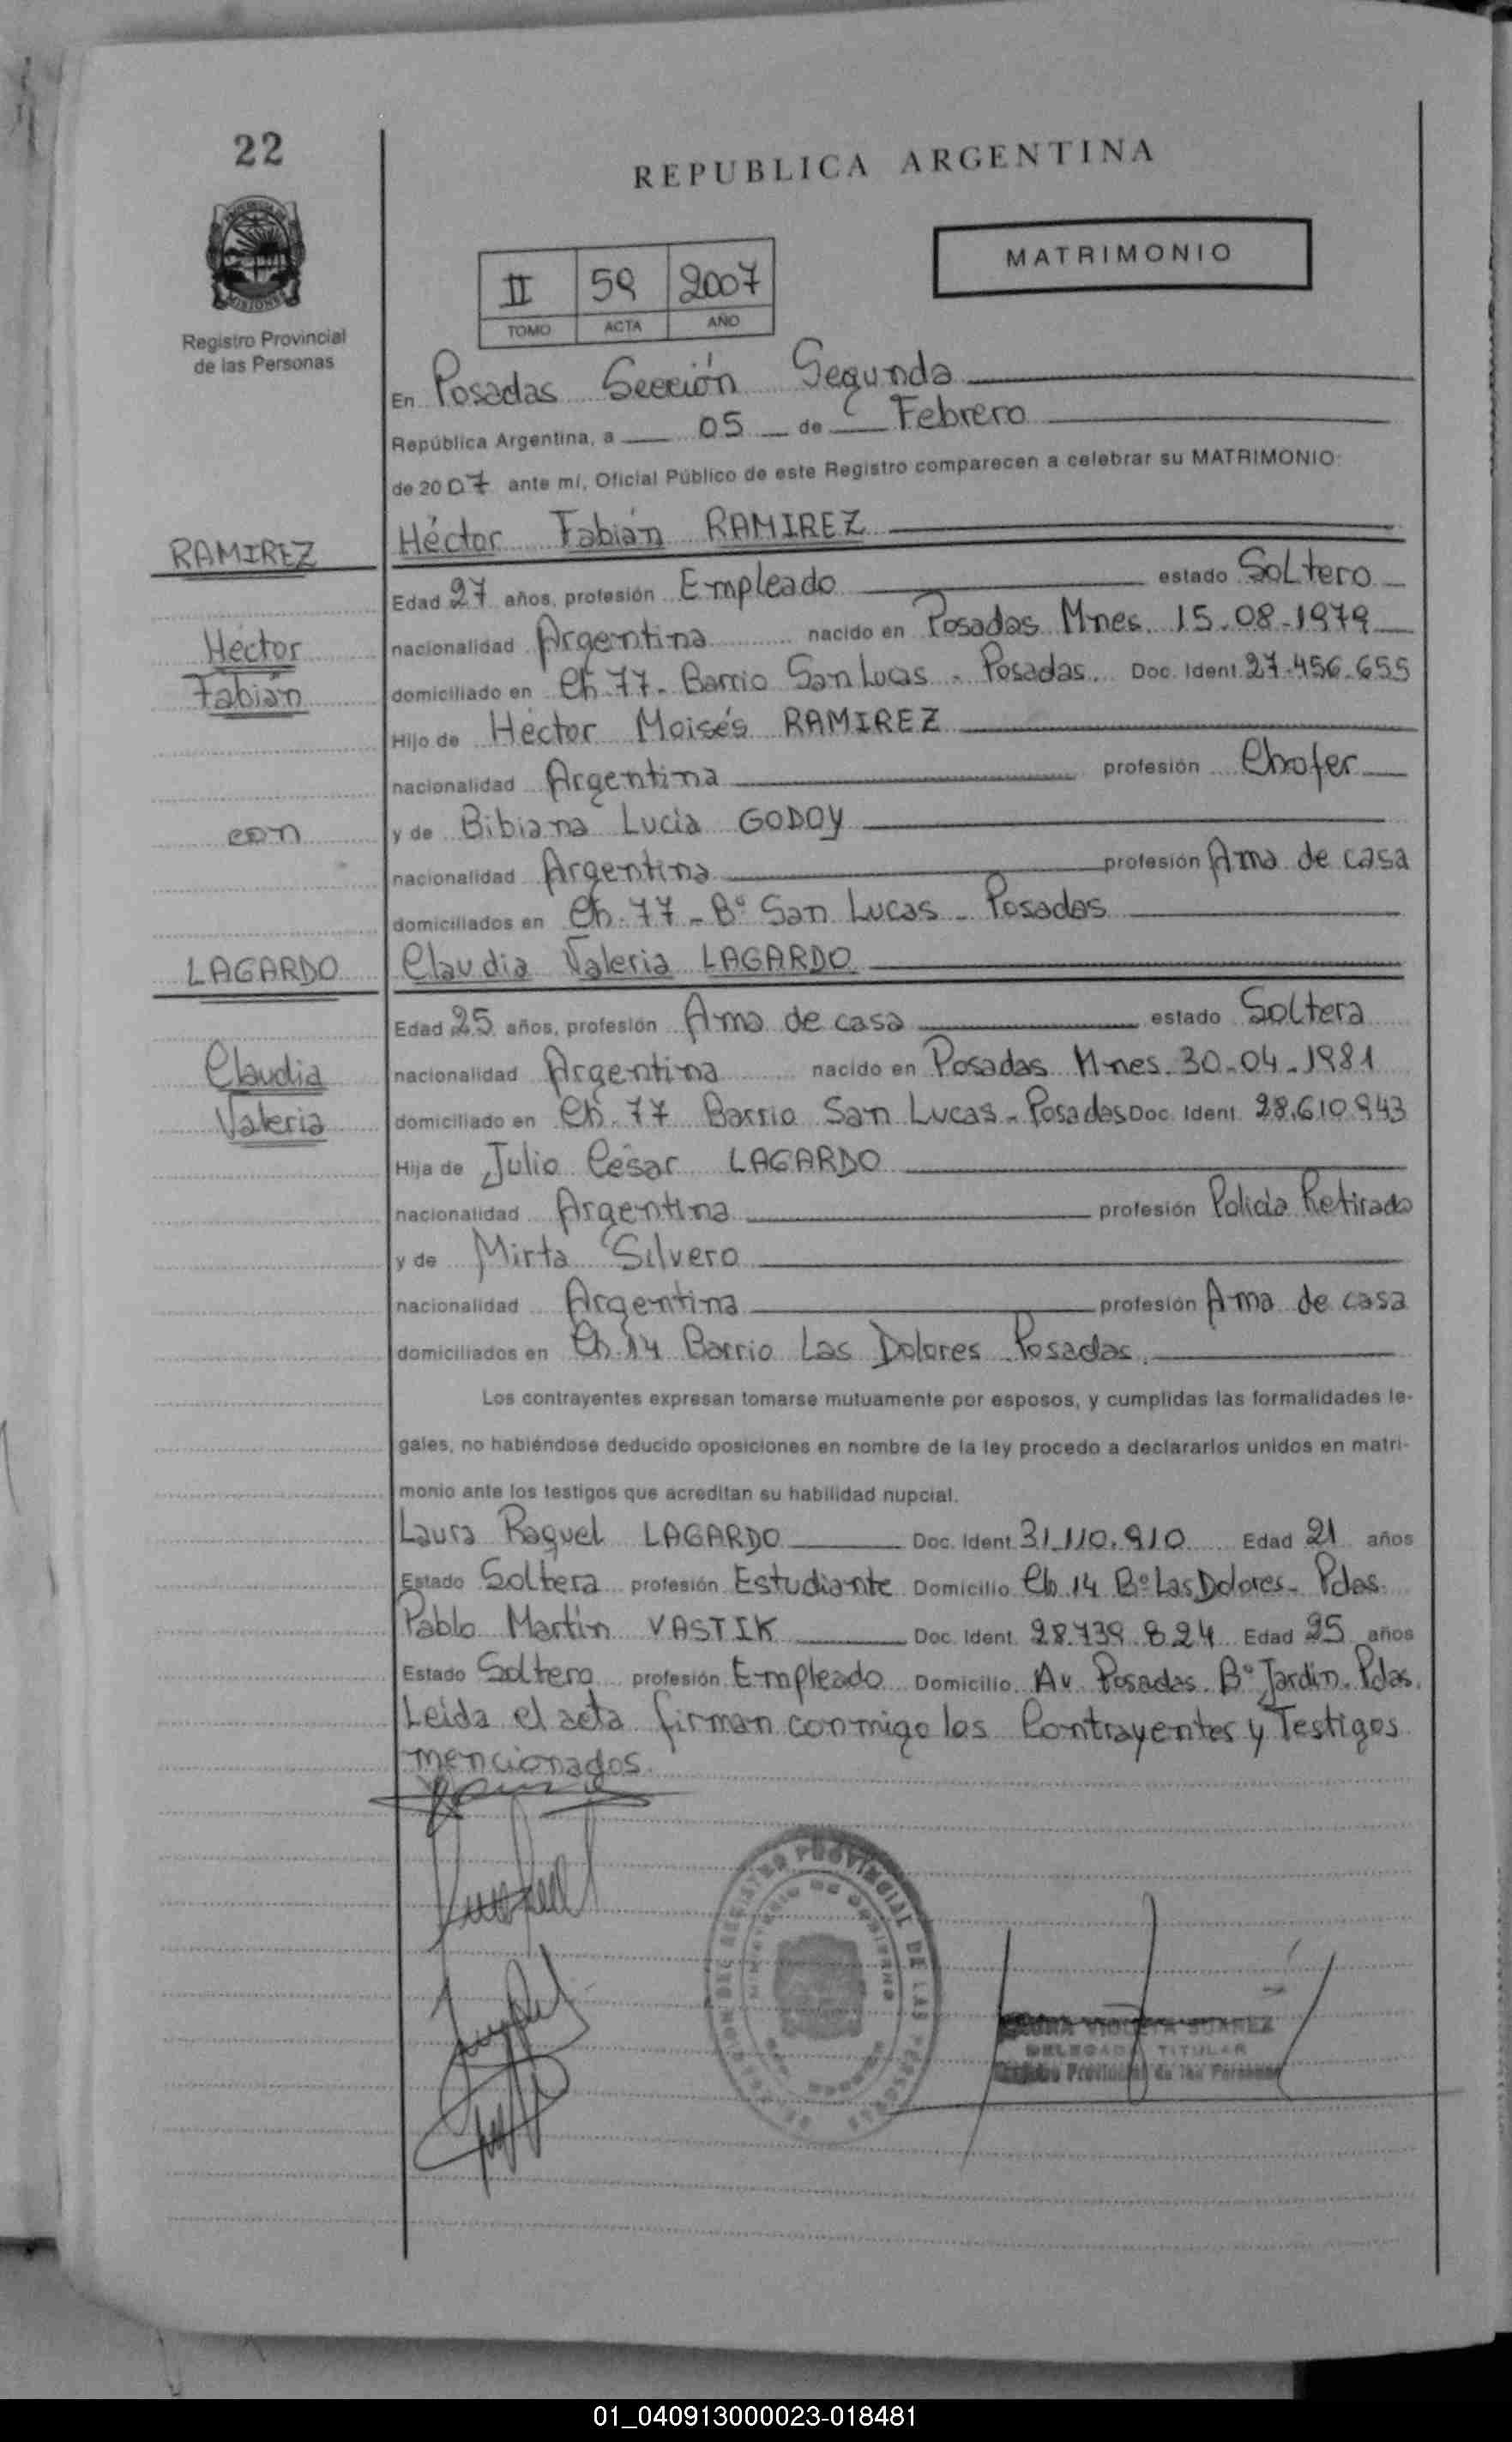 22
REPUBLICA ARGENTINA
MATRIMONIO
II 59 2007
TOMO ACTA AÑO
Registro Provincial
de las Personas
En Posadas Sección Segunda
República Argentina, a 05 de Febrero
de 2007 ante mí, Oficial Público de este Registro comparecen a celebrar su MATRIMONIO:
RAMIREZ
Héctor Fabián RAMIREZ
Edad 27 años, profesión Empleado estado Soltero
Héctor
nacionalidad Argentina nacido en Posadas Mnes. 15-08-1979
Fabián
domiciliado en Ch. 77- Barrio San Lucas - Posadas. Doc. Ident. 27.456.655
Hijo de Héctor Moisés RAMIREZ
nacionalidad Argentina profesión Chofer
con
y de Bibiana Lucia GODOY
nacionalidad Argentina profesión Ama de casa
domiciliados en Ch. 77- B° San Lucas - Posadas
LAGARDO
Claudia Valeria LAGARDO
Edad 25 años, profesión Ama de casa estado Soltera
Claudia
nacionalidad Argentina nacido en Posadas Mnes. 30-04-1981
Valeria
domiciliado en Ch. 77 Barrio San Lucas - Posadas Doc. Ident. 28.610.943
Hija de Julio César LAGARDO
nacionalidad Argentina profesión Policía Retirado
y de Mirta Silvero
nacionalidad Argentina profesión Ama de casa
domiciliados en Ch. 14 Barrio Las Dolores Posadas.
Los contrayentes expresan tomarse mutuamente por esposos, y cumplidas las formalidades le-
gales, no habiéndose deducido oposiciones en nombre de la ley procedo a declararlos unidos en matri-
monio ante los testigos que acreditan su habilidad nupcial.
Laura Raquel LAGARDO Doc. Ident. 31.110.910 Edad 21 años
Estado Soltera profesión Estudiante Domicilio Ch 14 B° Las Dolores - Pdas.
Pablo Martín VASTIK Doc. Ident. 28.739.824 Edad 25 años
Estado Soltero profesión Empleado Domicilio Av Posadas. B° Jardín. Pdas.
Leida el acta firman conmigo los Contrayentes y Testigos
mencionados.
REGISTRO PROVINCIAL DE LAS PERSONAS
MINISTERIO DE GOBIERNO
VIOLETA SUAREZ
DELEGADA TITULAR
Registro Provincial de las Personas
01_040913000023-018481